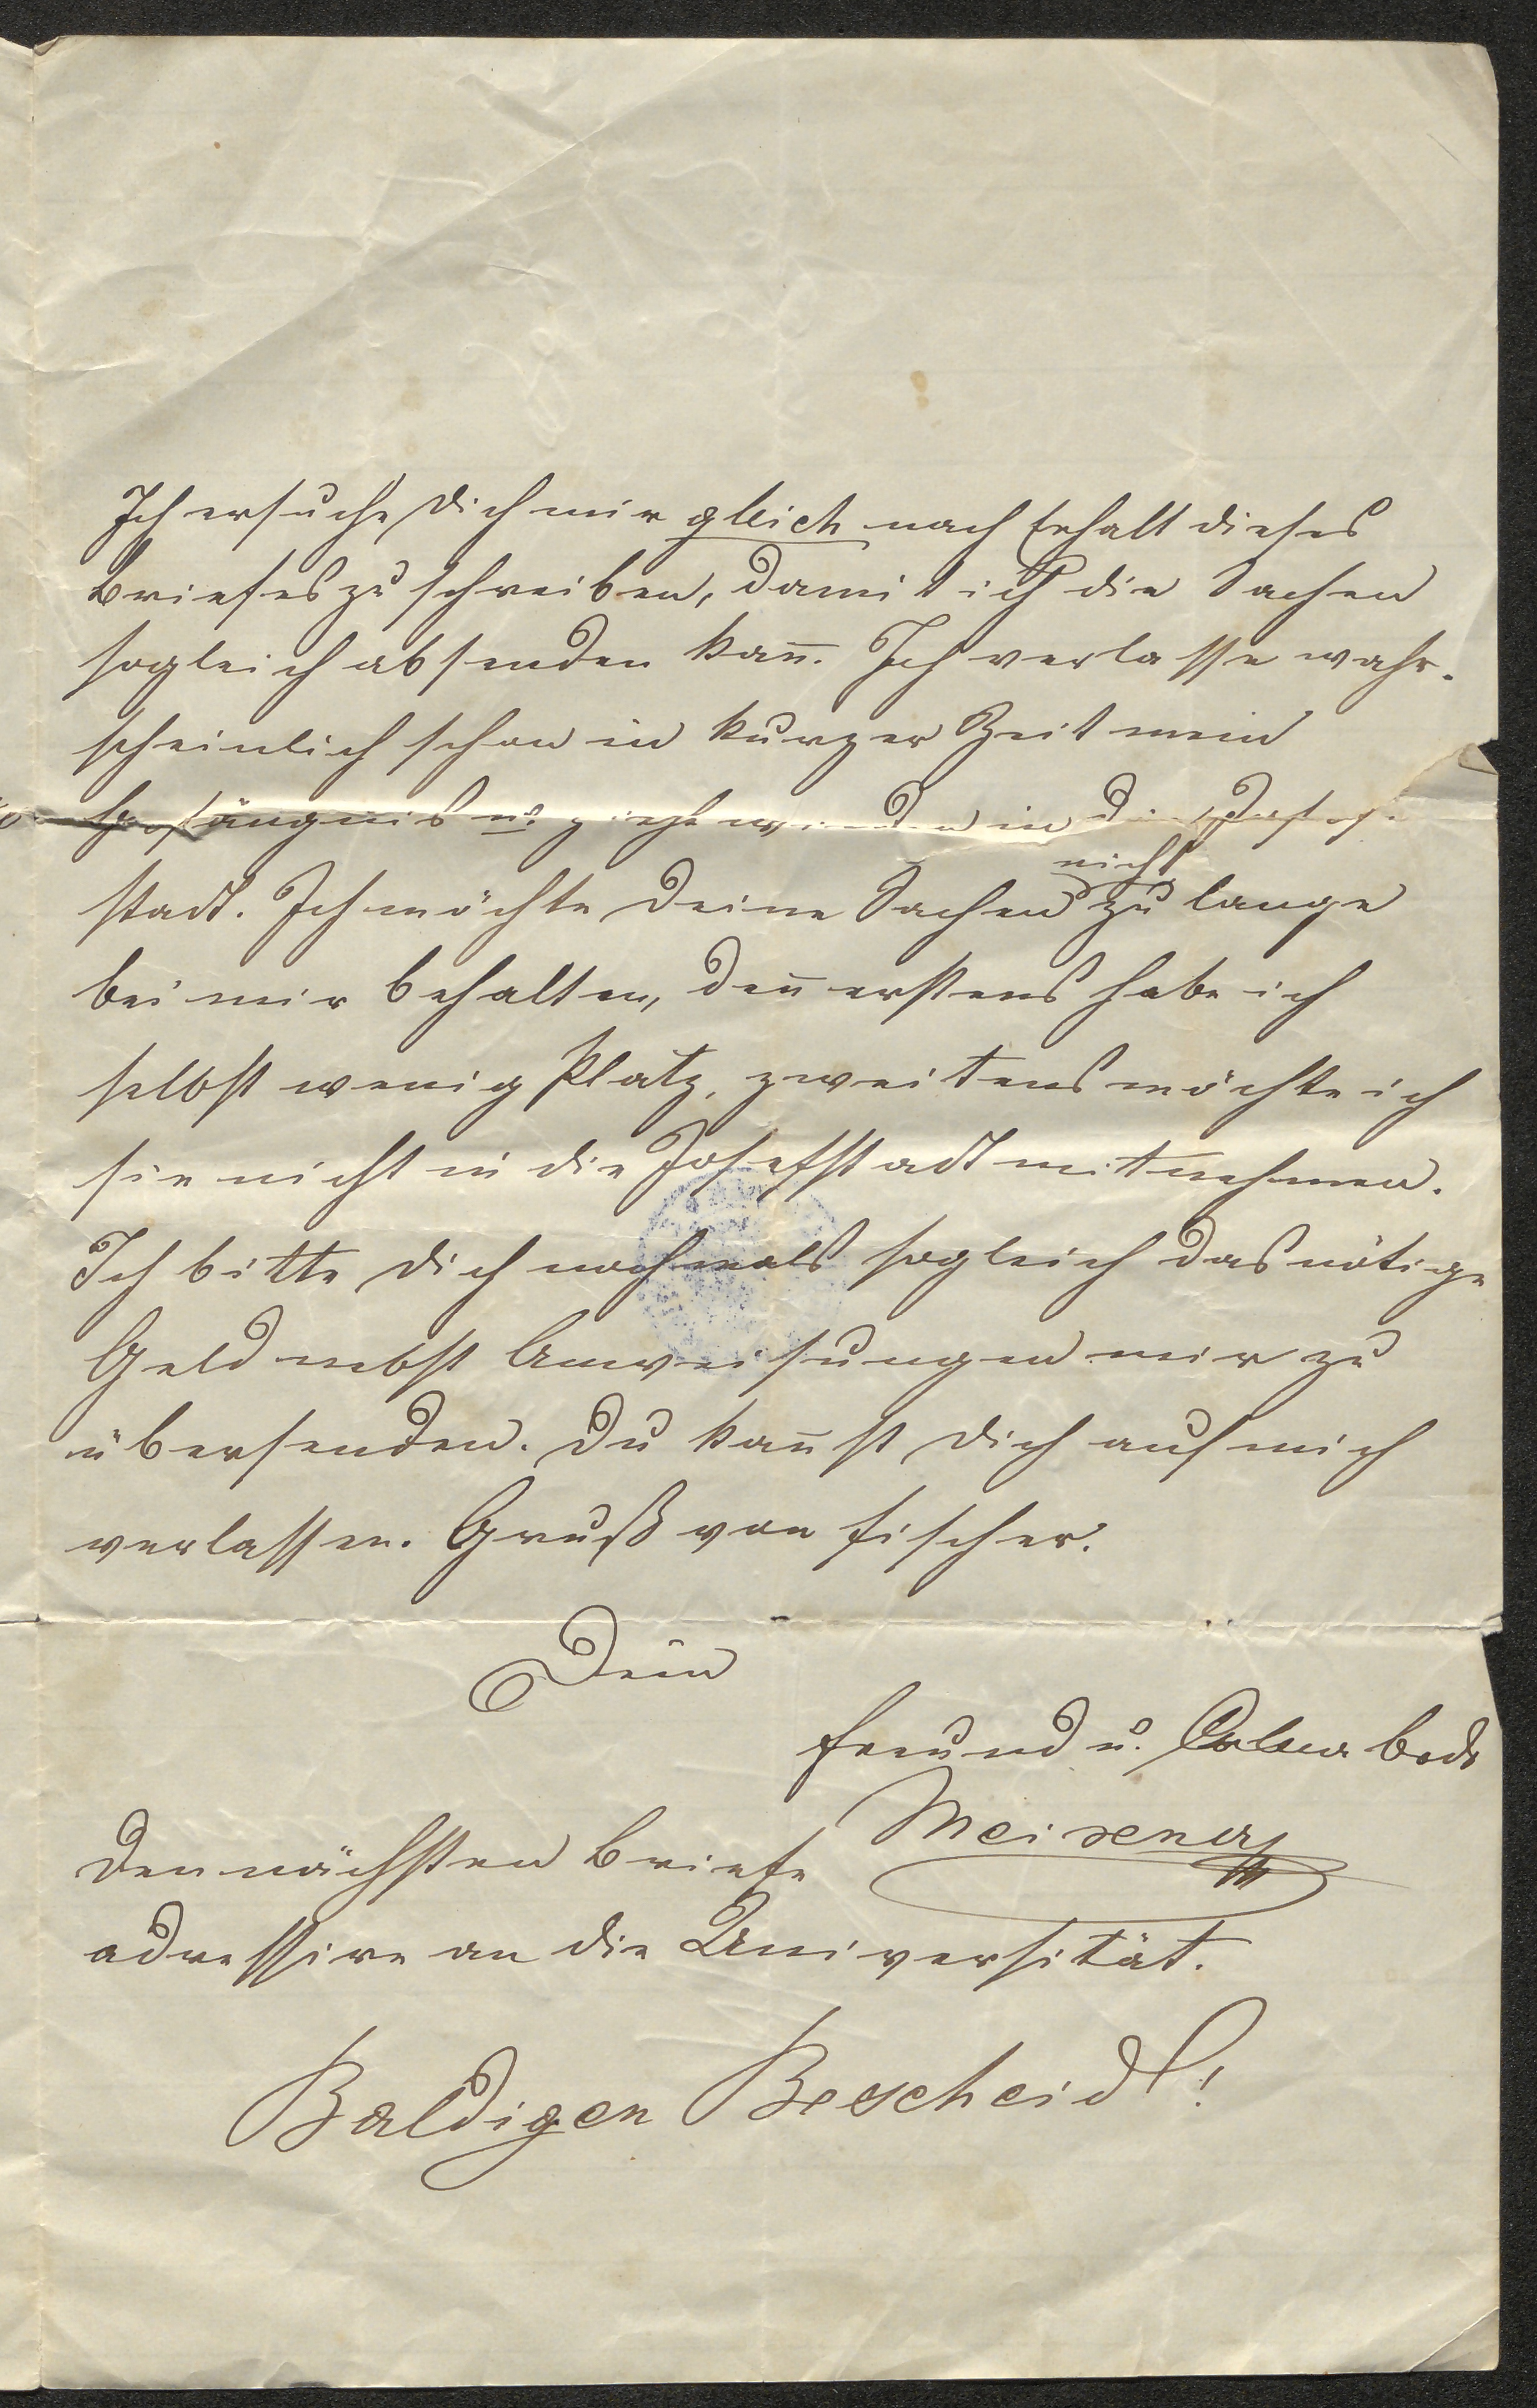 Ich ersuche Dich mir gleich nach Erhalt dieses
Briefes zu schreiben, damit ich die Sachen
sogleich absenden kan̅. Ich verlasse wahr-
scheinlich schon in kurzer Zeit mein
Gefängnis u. ziehe wieder in die Josef-
stadt. Ich möchte Deine Sachen nicht zu lange
bei mir behalten, den̅ erstens habe ich
selbst wenig Platz, zweitens möchte ich
sie nicht in die Josefstadt mitnehmen.
Ich bitte Dich nochmals sogleich das nötige
Geld nebst Anweisungen mir zu
übersenden. Du kan̅st Dich auf mich
verlassen. Gruß von Fischer.
Dein
Freund u.
Meixner
Den nächsten Briefe
adressire an die Universität.
Baldigen Bescheid!